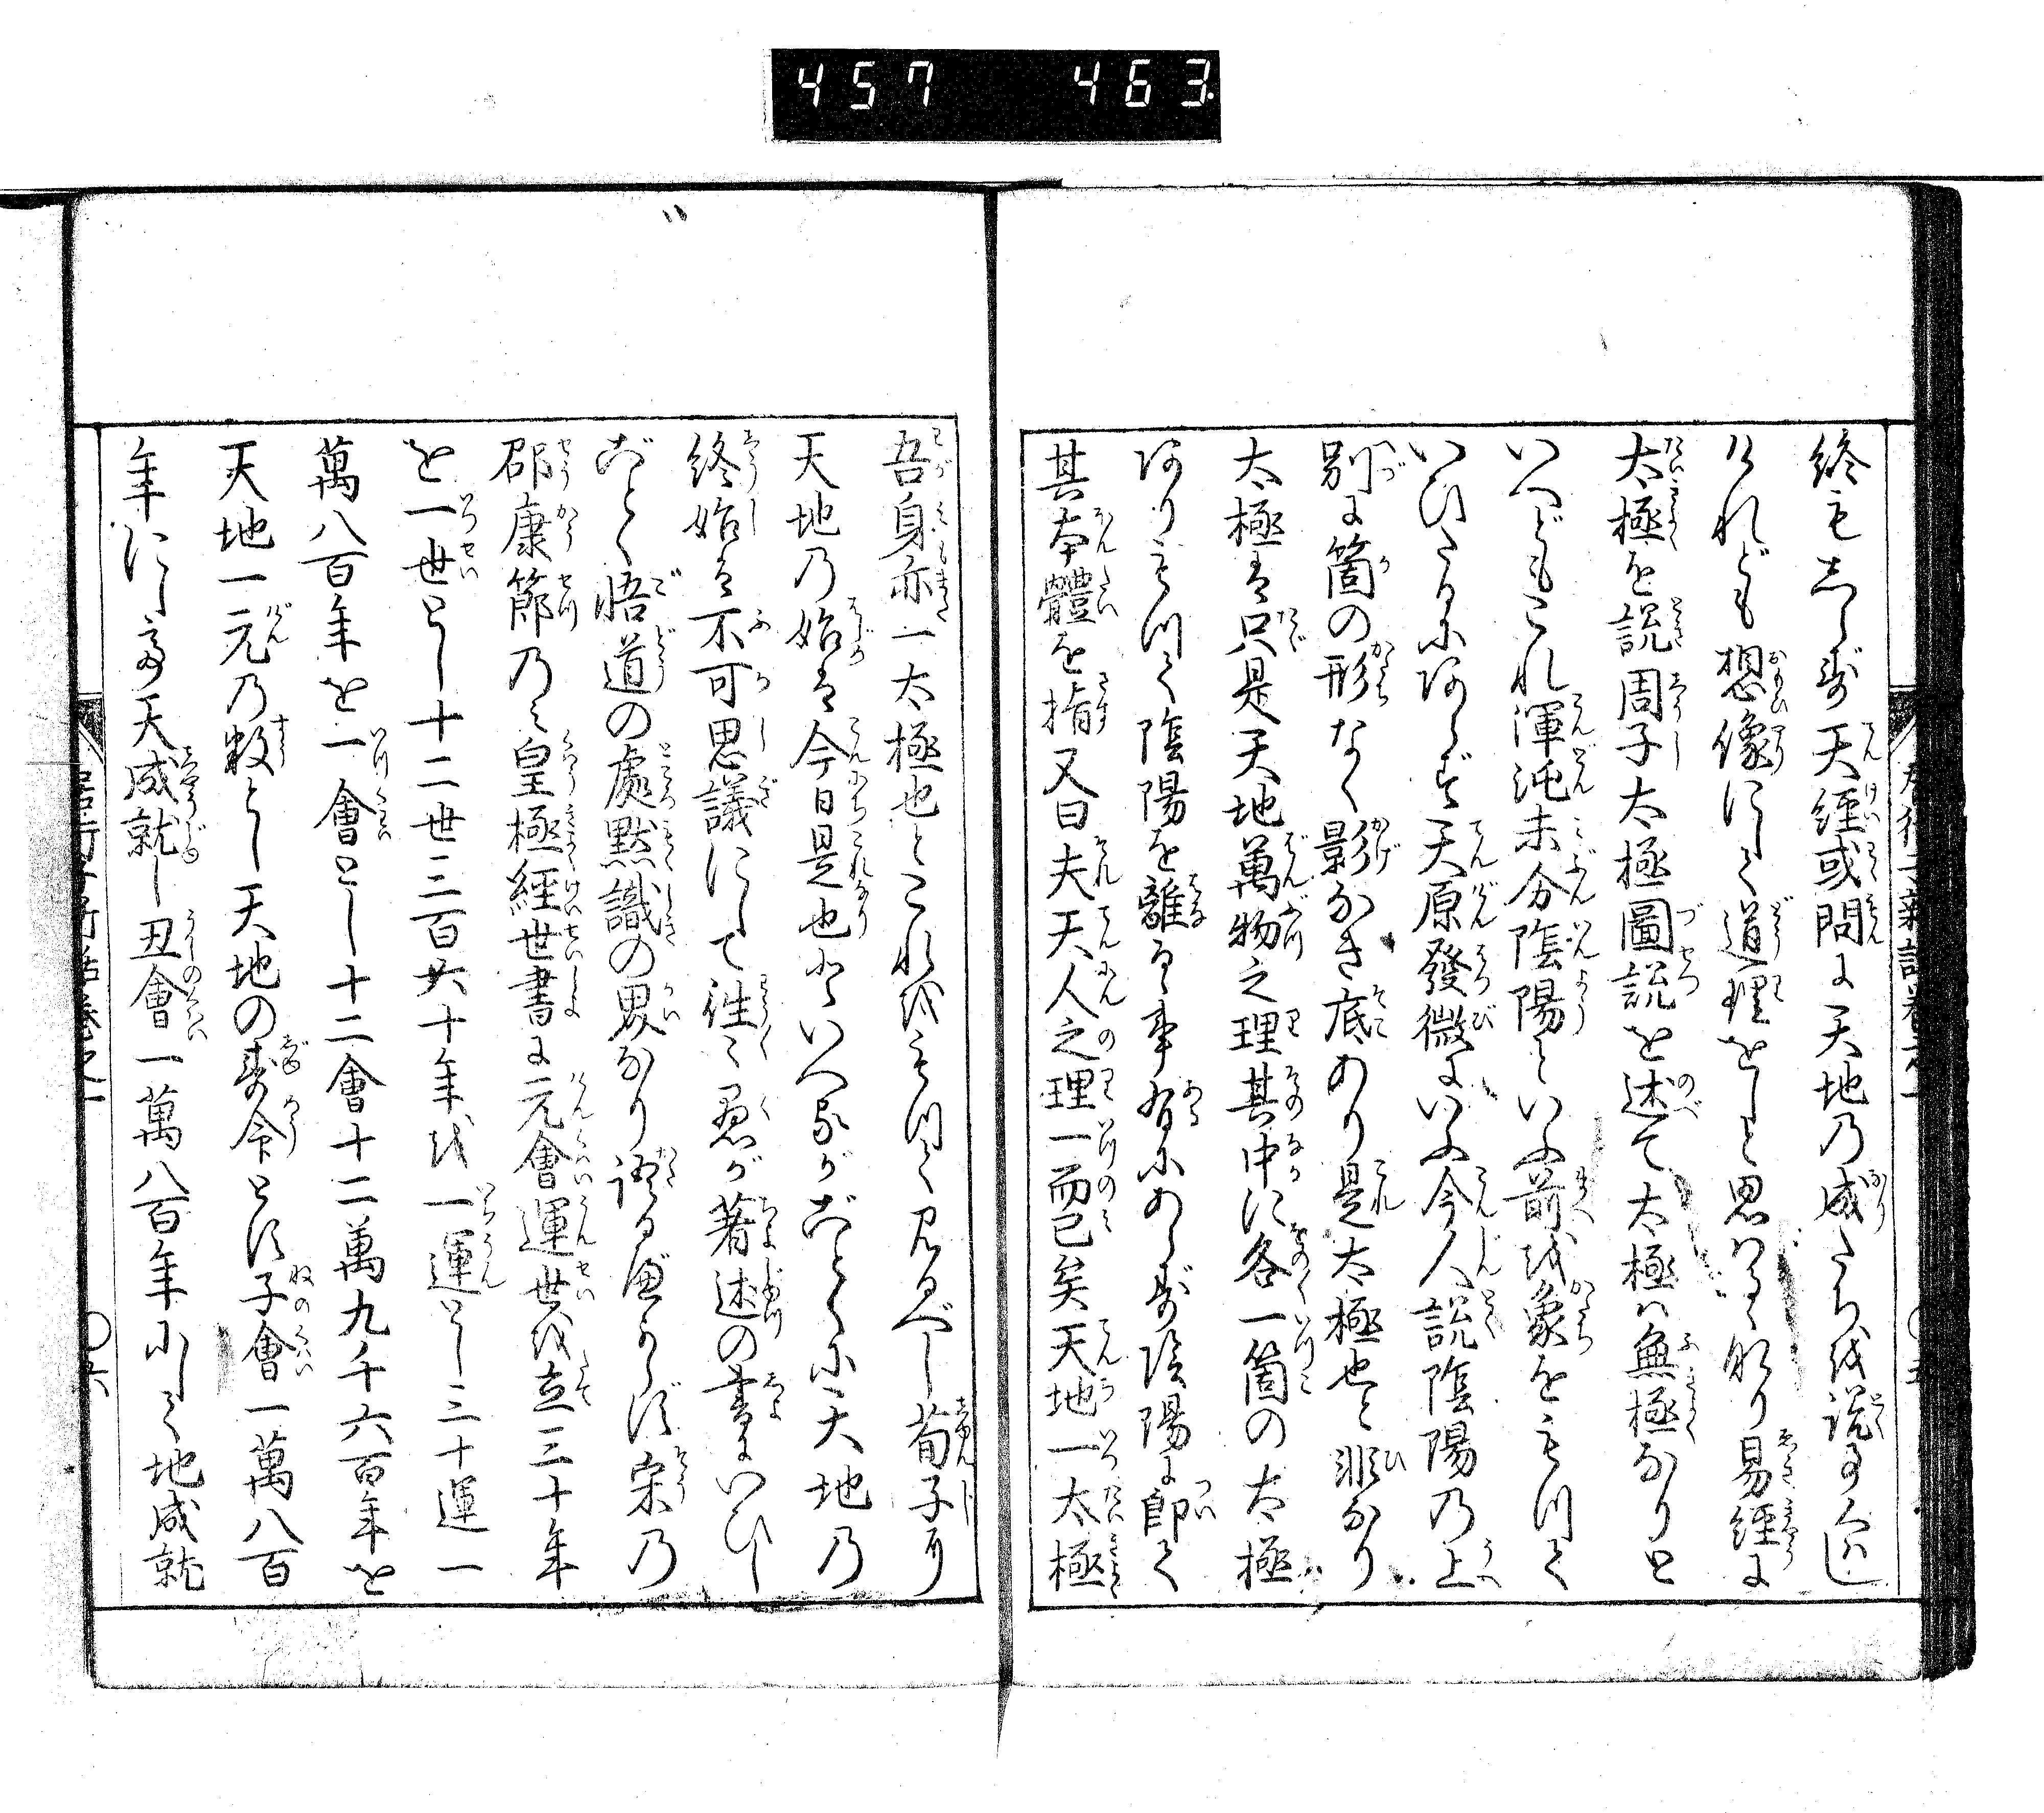 457 463
終もしらず天經或問に天地の成たちを説る人は
けれども想像にして道理をしと思はるゝ也り易經に
太極を説周子太極圖説を述て太極は無極なりと
いへどもこれ渾沌未分陰陽といふ前を象をもつて
いひたるにあらず天原發微にいふ今人説陰陽の上
別に箇の形なく影なき底あり是太極也と非なり
太極は只是天地萬物之理其中に各一箇の太極
ありもつて陰陽を離る事有にあらず陰陽に即て
其本體を指又曰夫天人之理一而已矣天地一太極
吾身亦一太極也とこれをもつて見るべし荀子り
天地の始は今日是也といへるがごとくに天地の
終始は不可思議にして往々愚が著述の書にいひし
ごとく悟道の處黙識の界なり語るべからず宋の
邵康節の皇極經世書に元會運世を立三十年
を一世とし十二世三百六十年を一運とし三十運一
萬八百年を一會とし十二會十二萬九千六百年を
天地一元の數とし天地の壽命とす子會一萬八百
年にして天成就し丑會一萬八百年にして地成就